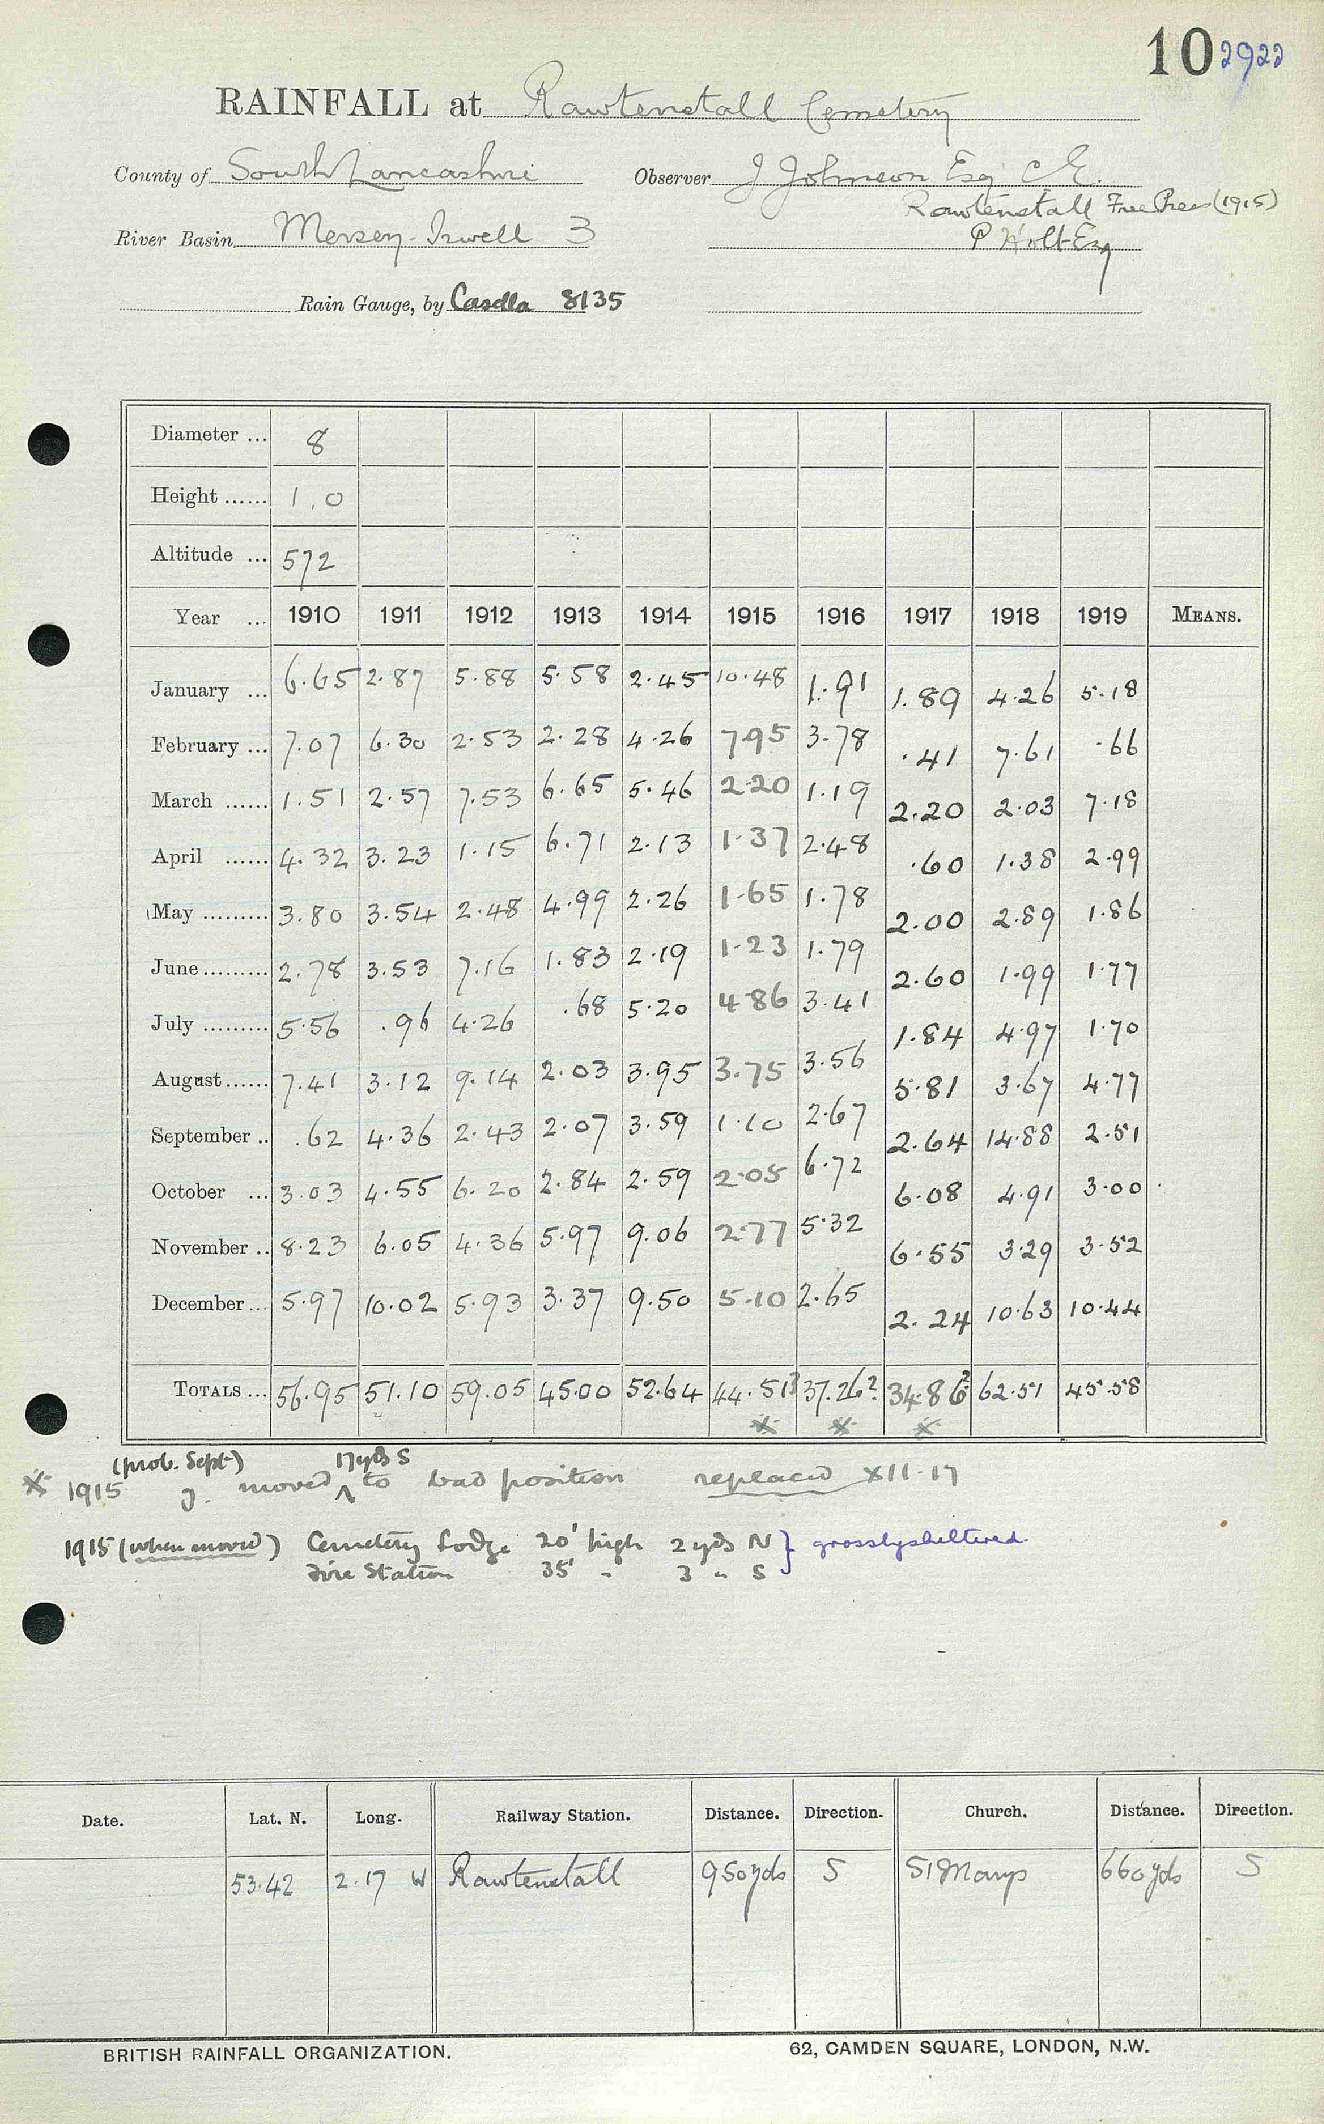 10 2922
RAINFALL at Rawtenstall Cemetery
County of South Lancashire Observer J Johnson Esq C.E.
Rawtenstall Free Press (1915)
River Basin Mersey-Irwell 3 P Holt Esq
Rain Gauge, by Casella 8135
Diameter ... 8
Height ...... 1.0
Altitude ... 572
Year ... 1910 1911 1912 1913 1914 1915 1916 1917 1918 1919 MEANS.
January ... 6.65 2.87 5.88 5.58 2.45 10.48 1.91 1.89 4.26 5.18
February ... 7.07 6.30 2.53 2.28 4.26 7.95 3.78 .41 7.61 .66
March ...... 1.51 2.57 7.53 6.65 5.46 2.20 1.19 2.20 2.03 7.18
April ...... 4.32 3.23 1.15 6.71 2.13 1.37 2.48 .60 1.38 2.99
May ......... 3.80 3.54 2.48 4.99 2.26 1.65 1.78 2.00 2.89 1.86
June ......... 2.78 3.53 7.16 1.83 2.19 1.23 1.79 2.60 1.99 1.77
July ......... 5.56 .96 4.26 .68 5.20 4.86 3.41 1.84 4.97 1.70
August ...... 7.41 3.12 9.14 2.03 3.95 3.75 3.56 5.81 3.67 4.77
September .. .62 4.36 2.43 2.07 3.59 1.10 2.67 2.64 14.88 2.51
October ... 3.03 4.55 6.20 2.84 2.59 2.05 6.72 6.08 4.91 3.00
November .. 8.23 6.05 4.36 5.97 9.06 2.77 5.32 6.55 3.29 3.52
December ... 5.97 10.02 5.93 3.37 9.50 5.10 2.65 2.24 10.63 10.44
TOTALS ... 56.95 51.10 59.05 45.00 52.64 44.51? 37.26? 34.86? 62.51 45.58
* * *
(prob. Sept) 17 yds S
* 1915 g. moved ^ to bad position replaced XII.17
1915 (when moved) Cemetery Lodge 20' high 2 yds N } grossly sheltered
Fire Station 35' " 3 " S
Date. Lat. N. Long. Railway Station. Distance. Direction. Church. Distance. Direction.
53.42 2.17 W Rawtenstall 950 yds S St Marys 660 yds S
BRITISH RAINFALL ORGANIZATION. 62, CAMDEN SQUARE, LONDON, N.W.